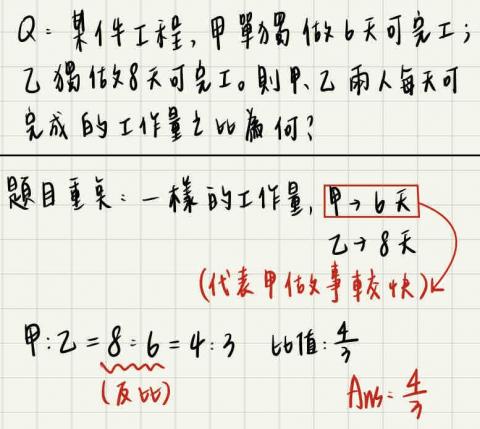 Q: 某件工程, 甲單獨做6天可完工;
乙獨做8天可完工。則甲、乙兩人每天可
完成的工作量之比為何?
題目重點: 一樣的工作量, 甲→6天
乙→8天
(代表甲做事較快)
甲:乙 = 8:6 = 4:3 比值: 4/3
(反比)
Ans: 4/3